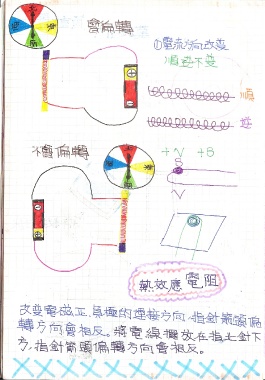 會偏轉
①電流方向改變
順逆不變
順
逆
不會偏轉
+V +8
S
V
熱效應 電阻
改變電磁正、負極的連接方向,指針箭頭偏
轉方向會相反。將電線擺放在指北針下
方,指針箭頭偏轉方向會相反。